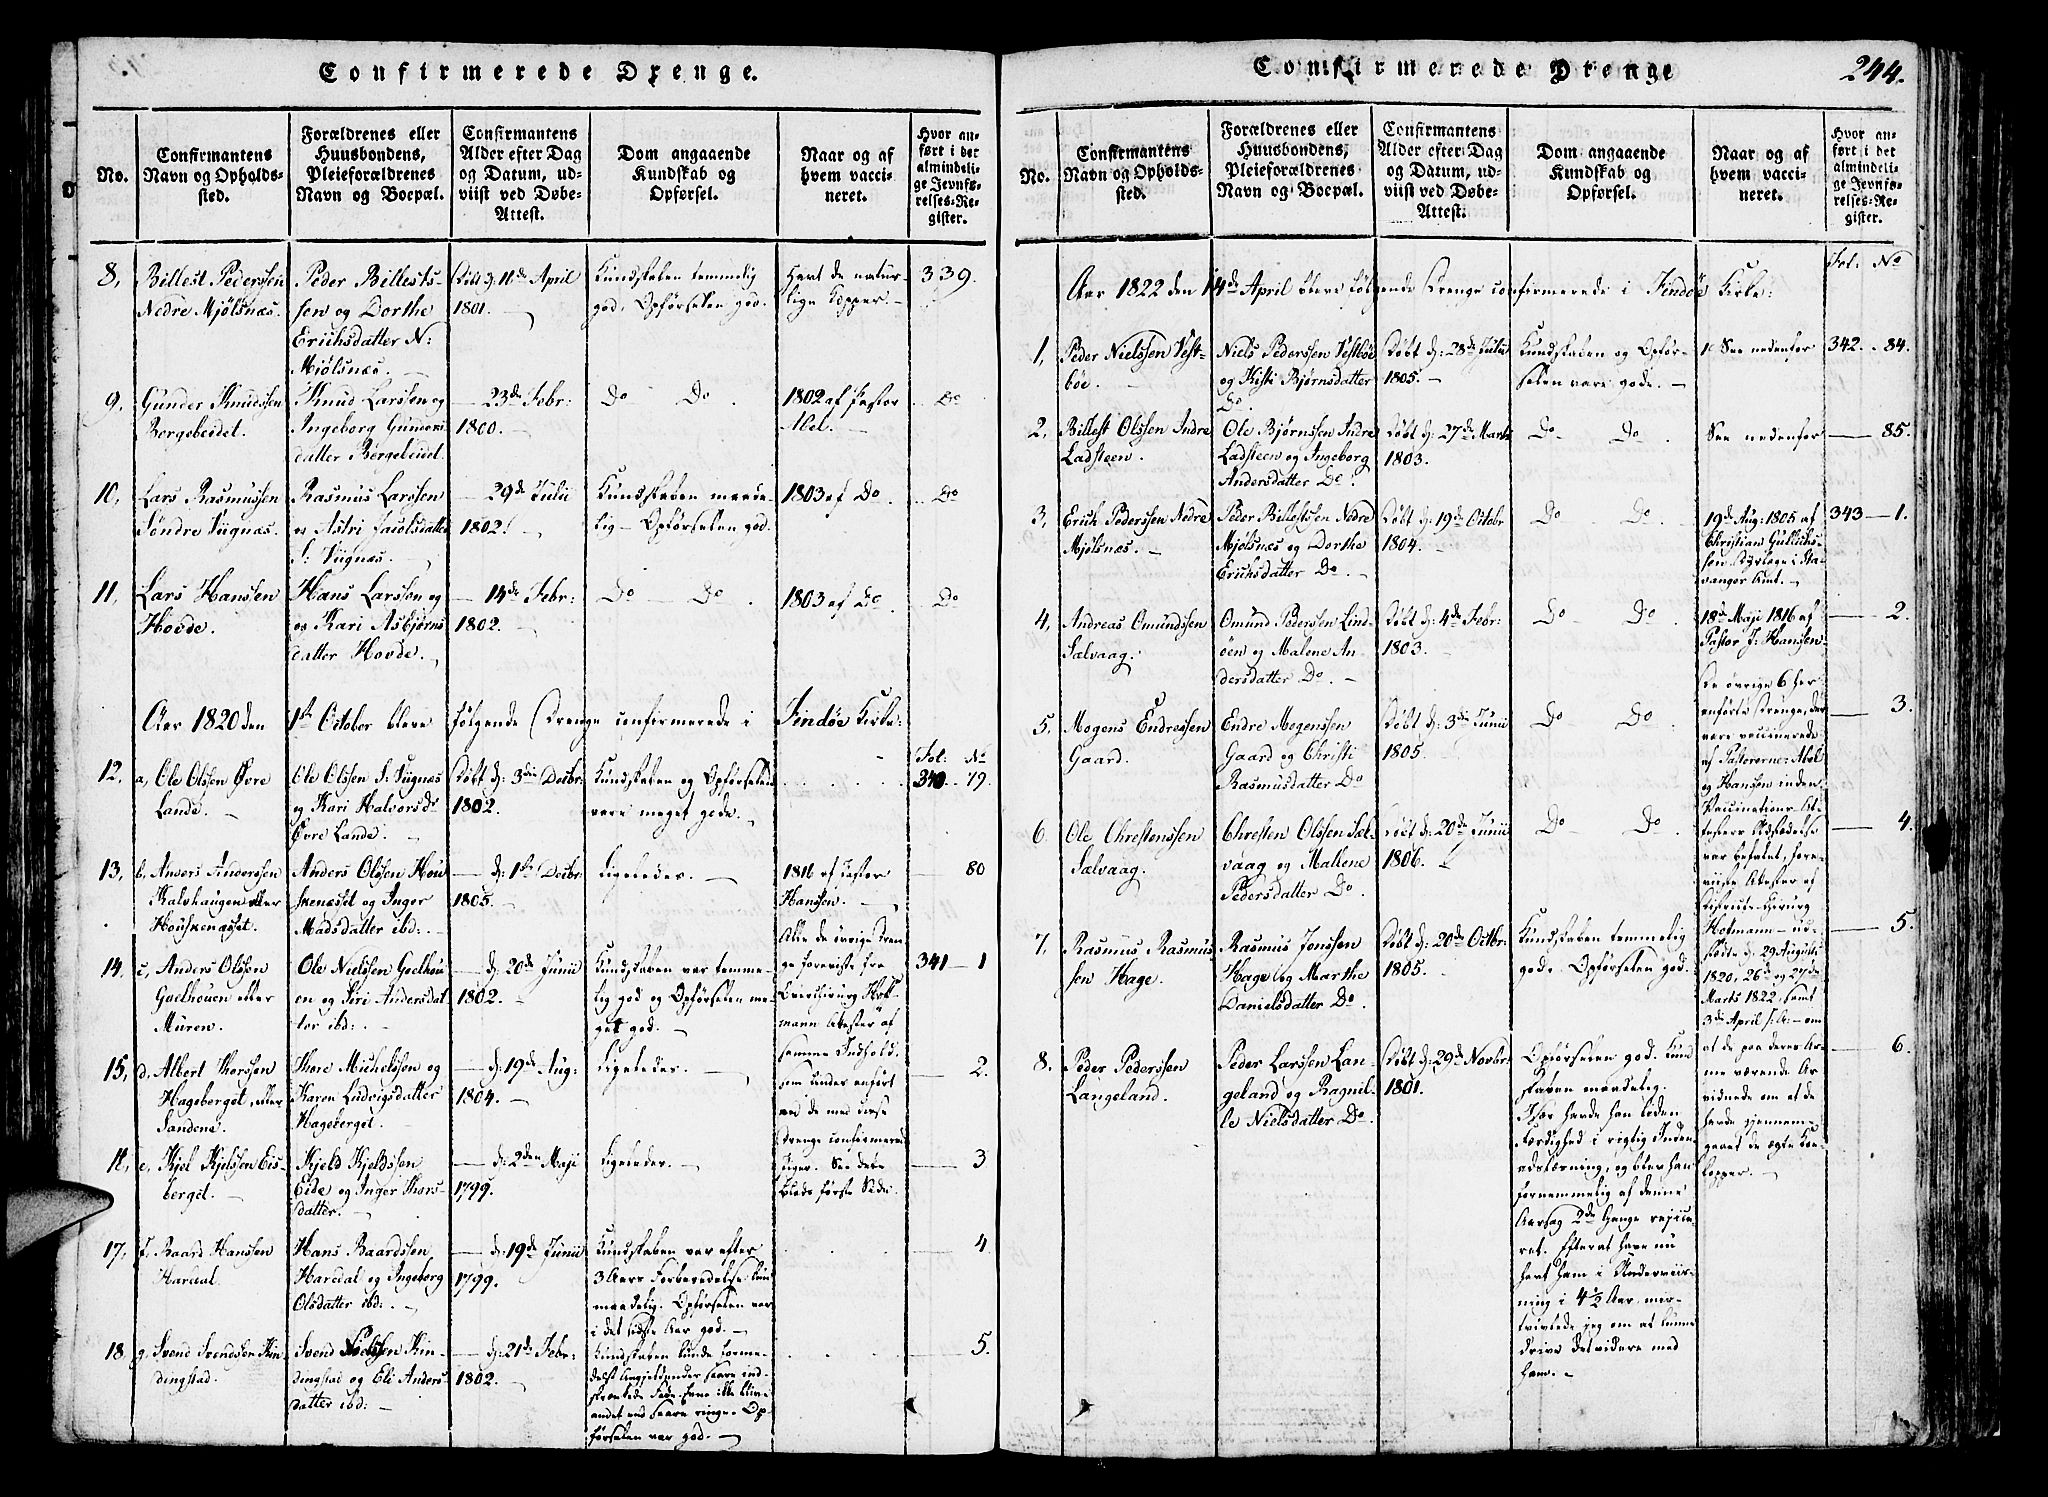 Confirmerede Drenge.
No.
Confirmantens
Navn og Opholds-
sted.
Forældrenes eller
Huusbondens,
Pleieforældrenes
Navn og Boepæl.
Confirmantens
Alder efter Dag
og Datum, ud-
viist ved Døbe-
Attest.
Dom angaaende
Kundskab og
Opførsel.
Naar og af
hvem vacci-
neret.
Hvor an-
ført i det
almindeli-
ge Jevnfø-
relses-Re-
gister.
8,
Billest Pederssen
Nedre Mjølsnæs.
Peder Billests-
sen og Dorthe
Erichsdatter N:
Mjølsnæs.
Døbt d: 11de April
1801.
Kundskaben temmelig
god, Opførselen god.
Havt de natur-
lige Kopper.
339.
9,
Gunder Knudssen
Bergebeidet.
Knud Larssen og
Ingeborg Gunders
datter Bergebeidet.
— 23de Febr:
1800.
Do — Do.
1802 af Pastor
Abel.
Do
10,
Lars Rasmussen
Søndre Viignæs.
Rasmus Larssen
og Astri Jacobsdatter
S: Viignæs.
— 29de Julii
1802.
Kundskaben maade-
lig — Opførselen god.
1803 af Do
Do
11,
Lars Hanssen
Hovde.
Hans Larssen og
og Kari Asbjørns
datter Hovde.
— 14de Febr:
1802.
Do — Do.
1803 af Do
Do
Aar 1820 den 1ste October bleve følgende Drenge confirmerede i Findøe Kirke:
Fol: No
12.
a, Ole Olssen Øvre
Lande.
Ole Olssen S: Viignæs
og Kari Halvorsdr
Øvre Lande.
Døbt d: 3die Decbr:
1802.
Kundskaben og Opførselen
vare meget gode.
340. 79.
13,
b, Anders Anderssen
Kalvhaugen eller
Houskenæsset.
Anders Olssen Hou
skenæsset og Inger
Madsdatter ibd:
— d: 1ste Decbr:
1805.
Ligeledes.
1816 af Pastor
Hanssen.
80
14,
c, Anders Olssen
Goelhouen eller
Muren.
Ole Nielssen Goelhou
en og Siri Andersdat
ter ibd:
— d: 20de Junii
1802.
Kundskaben var temme-
lig god og Opførselen me-
get god.
Alle de øvrige Dren
ge foreviste fra
Hoff
mann Attester af
samme Indhold,
som under anført
ved de med disse
Drenge confirmerede
Piger. See dette
Blads første Side.
341 — 1
15,
d. Albert Thorssen
Hageberget, eller
Sandene.
Thore Michelssen og
Karen Ludvigsdatter
Hageberget.
— d: 19de Aug:
1804.
Ligeledes.
2.
16,
e, Kjel Kjelssen Eis-
berget.
Kjeld Kjeldssen
Eide og Inger Thors-
datter.
— d: 2den Maji
1799.
Ligeledes.
3
17,
f. Baard Hanssen
Hardal.
Hans Baardssen
Hardal og Ingeborg
Olsdatter ibd:
— d: 19de Junii
1799.
Kundskaben var efter
3 Aars Forberedelse kun
maadelig. Opførselen var
i det sidste Aar god.
4
18
g. Svend Svendssen Kin
dingstad.
Svend Nielssen Kin-
dingstad og Eli Anders-
datter ibd:
— d: 21de Febr:
1802.
Kundskaben kunde forme-
delst Angjeldendes saare ind-
skrænkede Sjæle-Evne ikke blive
andet end saare ringe. Op-
førselen var god.
5.
Confirmerede Drenge
244.
No.
Confirmantens
Navn og Opholds-
sted.
Forældrenes eller
Huusbondens,
Pleieforældrenes
Navn og Boepæl.
Confirmantens
Alder efter Dag
og Datum, ud-
viist ved Døbe-
Attest.
Dom angaaende
Kundskab og
Opførsel.
Naar og af
hvem vacci-
neret.
Hvor an-
ført i det
almindeli-
ge Jevnfø-
relses-Re-
gister.
Fol: No
Aar 1822 den 14de April bleve følgende Drenge confirmerede i Findøe Kirke:
1,
Peder Nielssen Vest-
bøe.
Niels Pederssen Vestbøe
og Kisti Bjørnsdatter
Do.
Døbt d: 28de Julii
1805.
Kundskaben og Opfør-
selen vare gode.
See nedenfor
342. 84.
2,
Billest Olssen Indre
Ladsteen.
Ole Bjørnssen Indre
Ladsteen og Ingeborg
Andersdatter Do.
Døbt d: 27de Marts
1803.
Do — Do.
See nedenfor
85.
3,
Erich Pederssen Nedre
Mjølsnæs.
Peder Billestssen Nedre
Mjølsnæs og Dorthe
Erichsdatter Do.
Døbt d: 19de Octobr
1804.
Do — Do.
19de Aug: 1805 af
Christian Gullichs-
sen Dyrlæge i Sta-
vanger Amt.
343 — 1.
4,
Andreas Omundssen
Sælvaag.
Omund Pederssen Lind-
øen og Malene An-
dersdatter Do.
Døbt d: 4de Febr:
1803.
Do — Do.
18de Maji 1816 af
Pastor J: Hanssen.
2.
5.
Mogens Endressen
Gaard.
Endre Mogenssen
Gaard og Christi
Rasmusdatter Do
Døbt d: 3die Junii
1805.
Do — Do
De øvrige 6 her
anførte Drenge, der
vare vaccinerede
af Pastorerne Abel
og Hanssen inden
Vaccinations-At-
testers Udstedelse
var befalet, fore-
viiste Attester af
Districts-Chirurg
Hofmann — ud-
stædte d. 29 Augusti
1820, 26de og 27de
Marts 1822, samt
3die April s: A: — om
at de paa deres Ar-
me værende Ar
vidnede om at de
havde gjennem-
gaaet de ægte Koe-
kopper.
3.
6
Ole Chrestenssen
Sælvaag.
Chresten Olssen Sæl-
vaag og Mallene
Pedersdatter Do.
Døbt d: 20de Junii
1806.
Do — Do.
4.
7.
Rasmus Rasmus
sen Hage.
Rasmus Jonssen
Hage og Marthe
Danielsdatter Do.
Døbt d: 20de Octbr:
1805.
Kundskaben temmelig
god. Opførselen god.
5.
8.
Peder Pederssen
Langeland.
Peder Larssen Lan-
geland og Ragnil-
le Nielsdatter Do.
Døbt d: 29de Novbr:
1801.
Opførselen god. Kund
skaben maadelig.
Især havde han liden
Færdighed i rigtig Inden
adslæsning, og blev han
fornemmelig af denne
Aarsag 2de Gange rejice-
ret. Efterat have nu
havt ham i Underviis-
ning i 4½ Aar, mis-
tvivlede jeg om at kunne
drive det videre med
ham.
6.